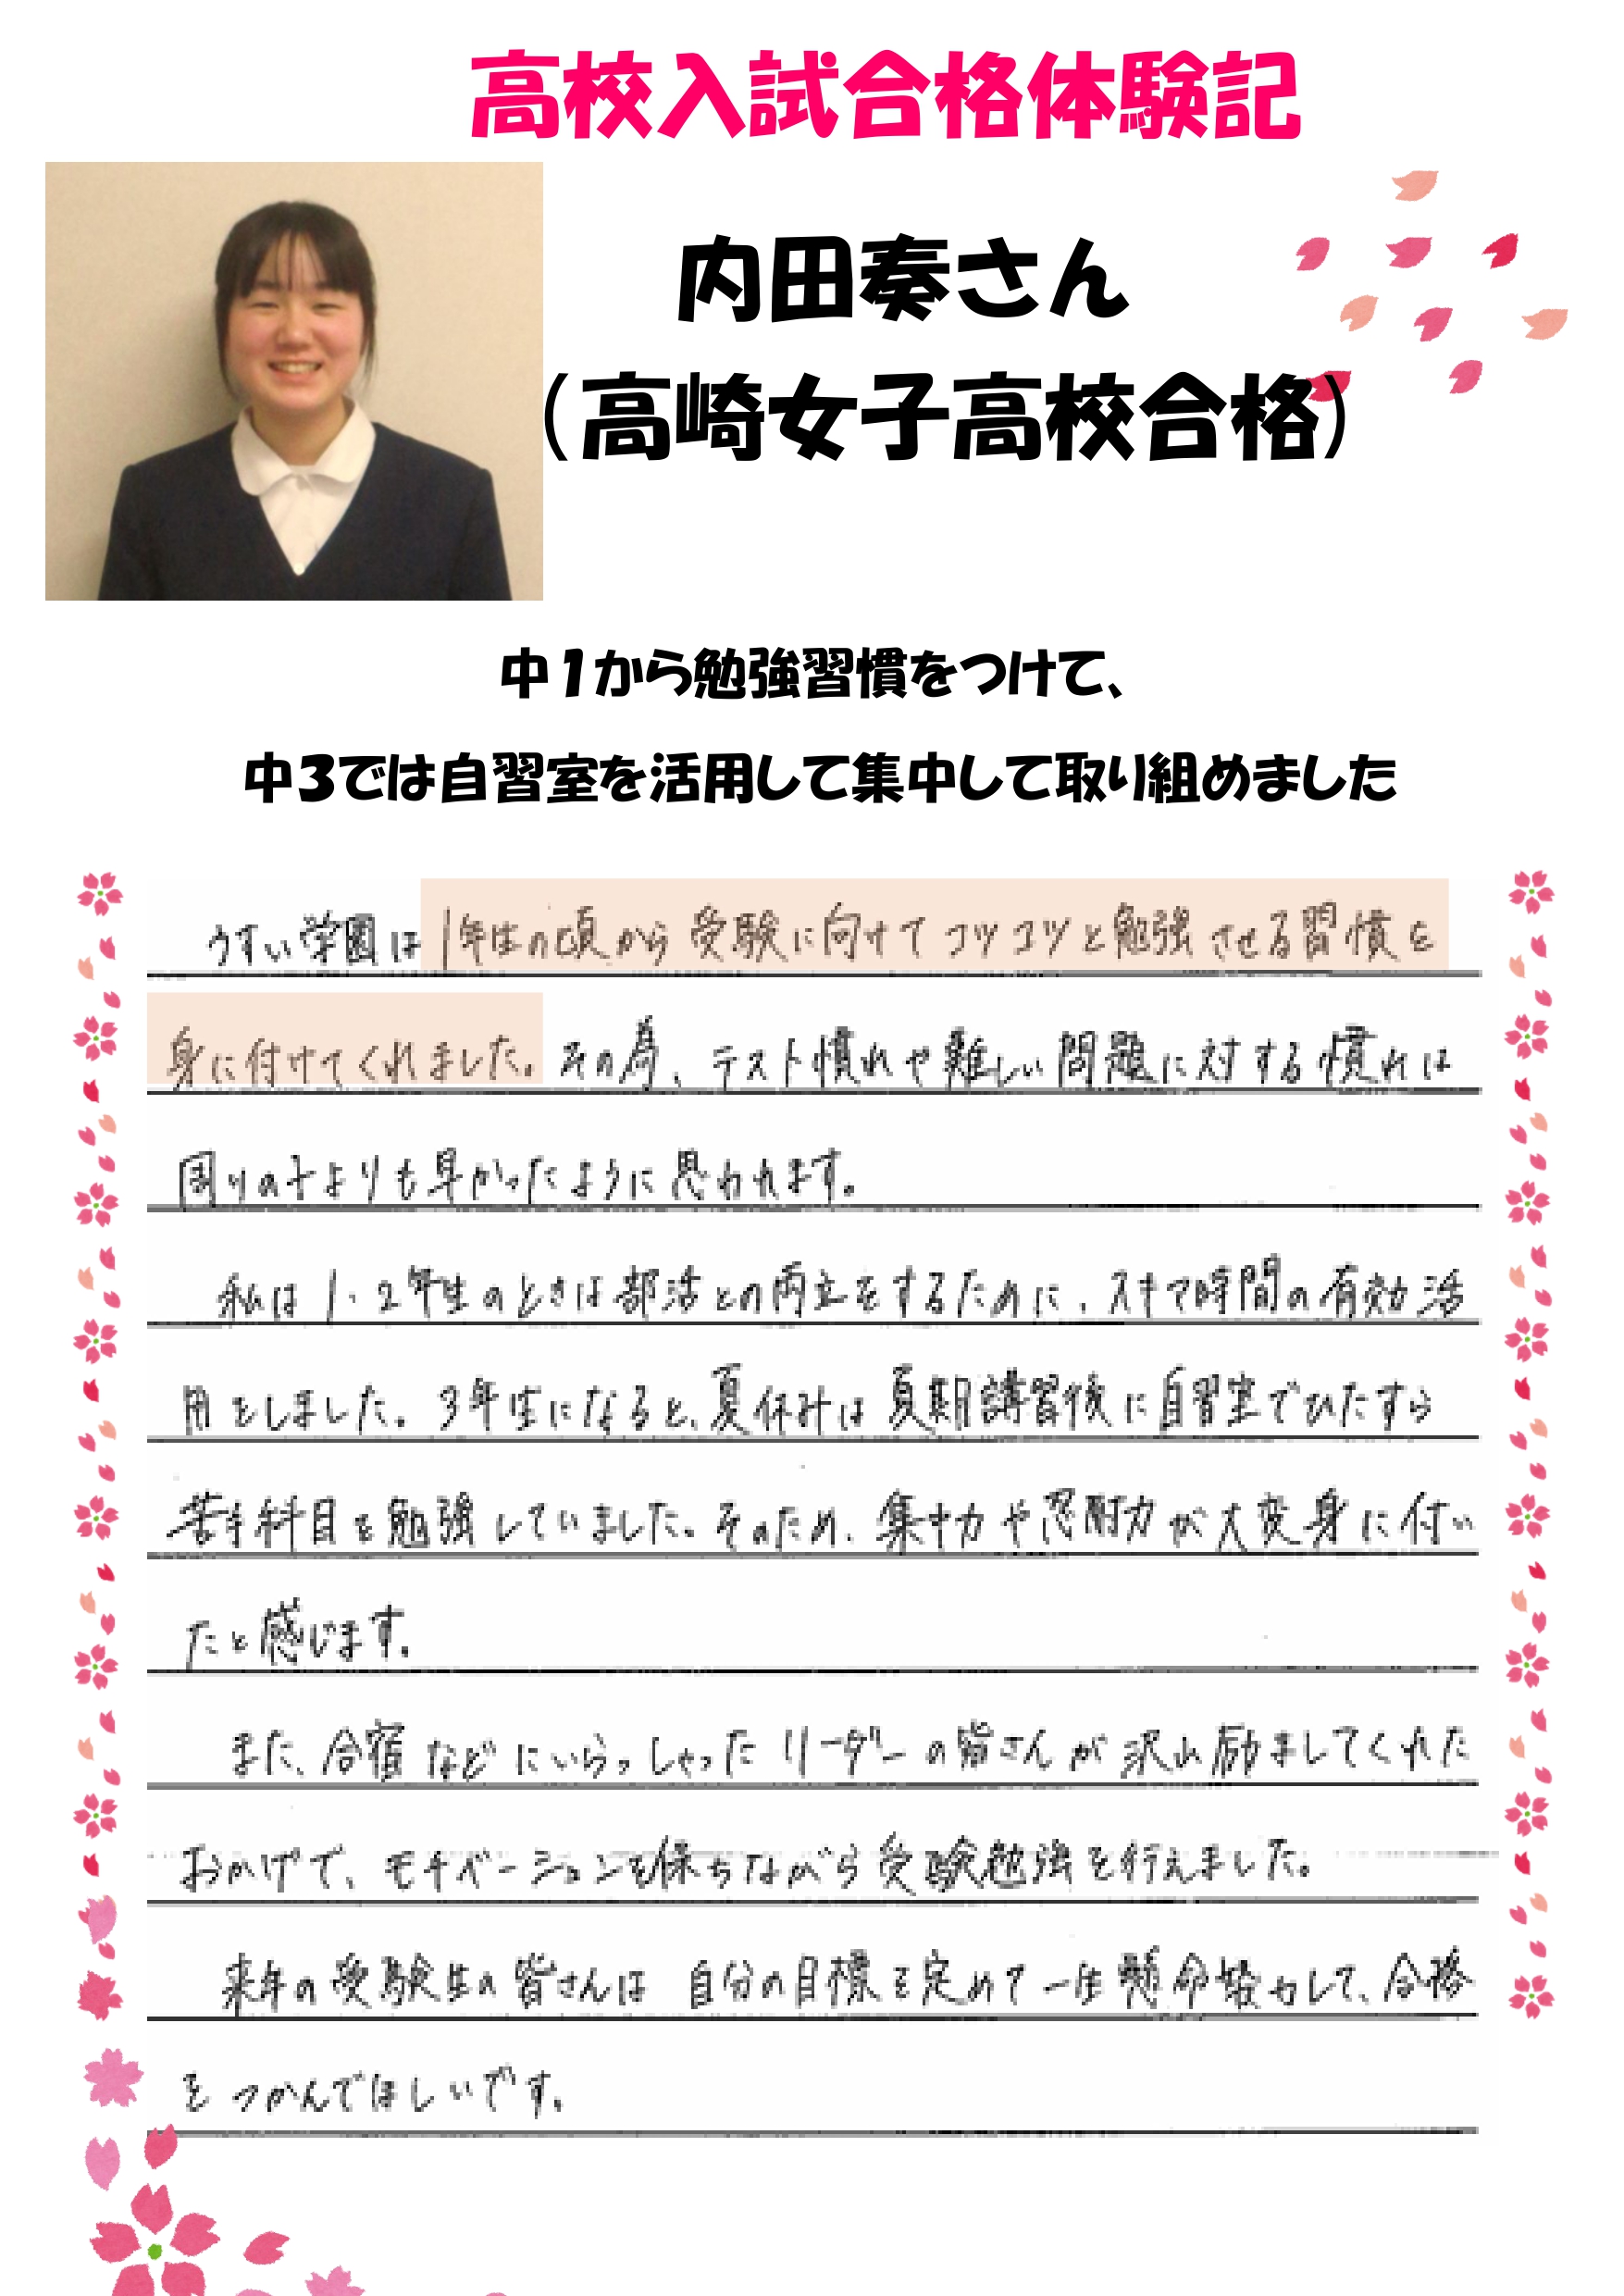 高校入試合格体験記
内田奏さん
（高崎女子高校合格）
中1から勉強習慣をつけて、
中3では自習室を活用して集中して取り組めました
うすい学園は1年生の頃から受験に向けてコツコツと勉強させる習慣を
身に付けてくれました。その為、テスト慣れや難しい問題に対する慣れは
周りの子よりも早かったように思われます。
私は1・2年生のときは部活との両立をするために、スキマ時間の有効活
用をしました。3年生になると、夏休みは夏期講習後に自習室でひたすら
苦手科目を勉強していました。そのため、集中力や忍耐力が大変身に付い
たと感じます。
また、合宿などにいらっしゃったリーダーの皆さんが沢山励ましてくれた
おかげで、モチベーションを保ちながら受験勉強を行えました。
来年の受験生の皆さんは 自分の目標を定めて一生懸命努力して、合格
をつかんでほしいです。